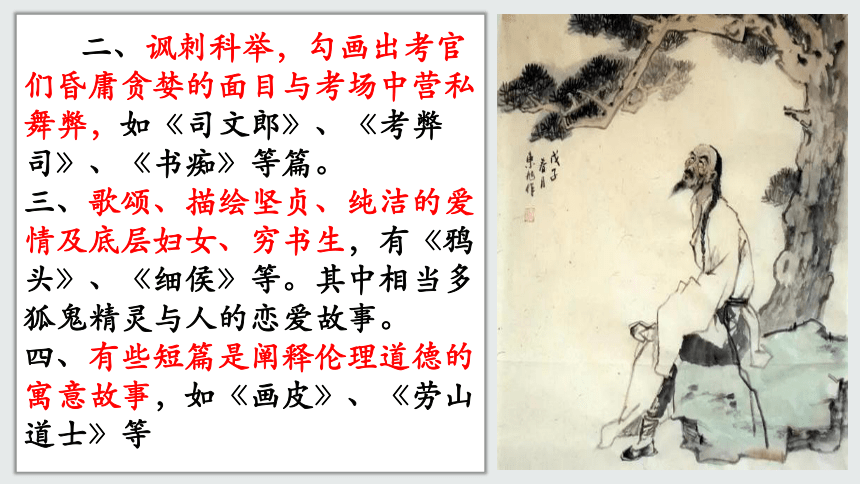 二、讽刺科举，勾画出考官
们昏庸贪婪的面目与考场中营私
舞弊，如《司文郎》、《考弊
司》、《书痴》等篇。
三、歌颂、描绘坚贞、纯洁的爱
情及底层妇女、穷书生，有《鸦
头》、《细侯》等。其中相当多
狐鬼精灵与人的恋爱故事。
四、有些短篇是阐释伦理道德的
寓意故事，如《画皮》、《劳山
道士》等
戊子
春月